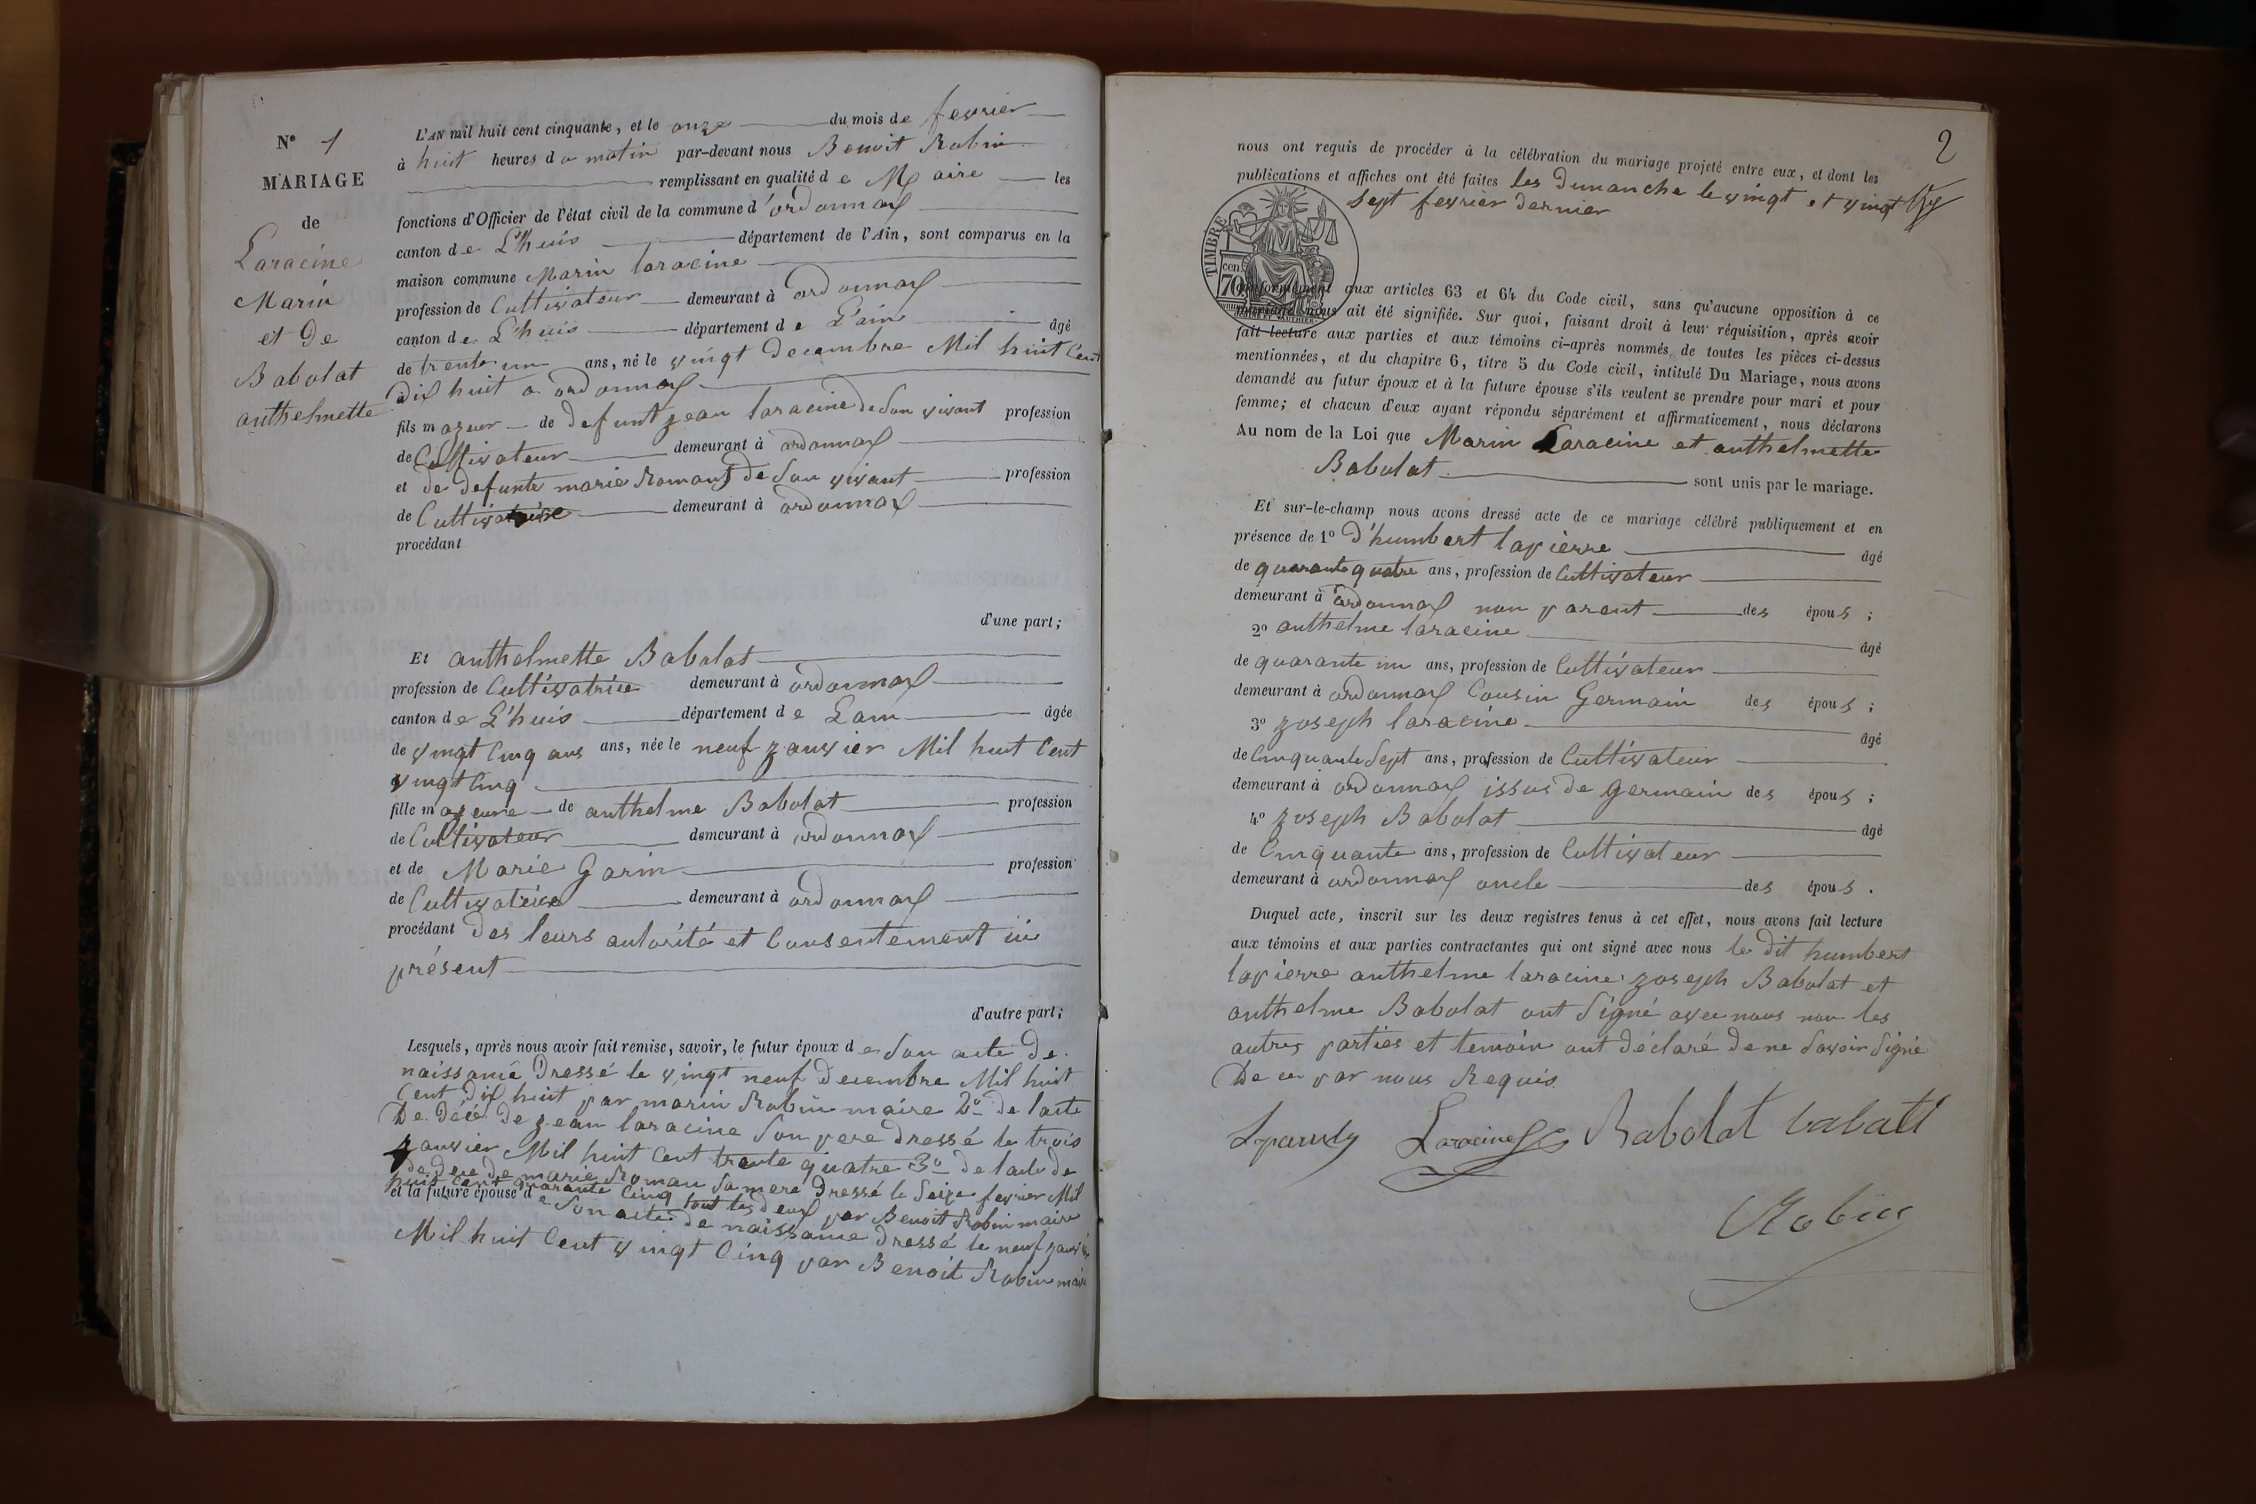 N° 1
MARIAGE
de
Laracine
Marin
et de
Babolat
anthelmette
L'AN mil huit cent cinquante, et le onze du mois de fevrier
à huit heures du matin par-devant nous Benoit Robin
remplissant en qualité de Maire les
fonctions d'Officier de l'état civil de la commune d'ordonnax
canton de L'huis département de l'Ain, sont comparus en la
maison commune Marin laracine
profession de Cultivateur demeurant à ordonnax
canton de L'huis département de L'ain âgé
de trente un ans, né le vingt decembre Mil huit Cent
dix huit a ordonnax
fils majeur de defunt jean laracine de Son vivant profession
de Cultivateur demeurant à ordonnax
et de defunte marie Romand de Son vivant profession
de Cultivatrice demeurant à ordonnax
procédant
d'une part;
Et anthelmette Babolat
profession de Cultivatrice demeurant à ordonnax
canton de L'huis département de Lain âgée
de vingt Cinq ans ans, née le neuf janvier Mil huit Cent
vingt Cinq
fille majeure de anthelme Babolat profession
de Cultivateur demeurant à ordonnax
et de Marie Garin profession
de Cultivatrice demeurant à ordonnax
procédant des leurs autorité et Consentement ici
présent
d'autre part;
Lesquels, après nous avoir fait remise, savoir, le futur époux de Son acte de
naissance Dressé le vingt neuf decembre Mil huit
Cent dix huit par marin Robin maire 2° de l'acte
De décé de jean laracine Son pere dressé le trois
janvier Mil huit Cent trente quatre 3° de l'acte de
de dece de marie Roman Sa mere Dressé le Seize fevrier Mil
huit Cent quarante Cinq tout les deux par Benoit Robin maire
et la future épouse de Son acte de naissance dressé le neuf janvier
Mil huit Cent vingt Cinq par Benoit Robin maire
2
nous ont requis de procéder à la célébration du mariage projeté entre eux, et dont les
publications et affiches ont été faites les dimanche le vingt et vingt
Sept fevrier dernier
TIMBRE
70 cen
conformément aux articles 63 et 64 du Code civil, sans qu'aucune opposition à ce
mariage nous ait été signifiée. Sur quoi, faisant droit à leur réquisition, après avoir
fait lecture aux parties et aux témoins ci-après nommés, de toutes les pièces ci-dessus
mentionnées, et du chapitre 6, titre 5 du Code civil, intitulé Du Mariage, nous avons
demandé au futur époux et à la future épouse s'ils veulent se prendre pour mari et pour
femme; et chacun d'eux ayant répondu séparément et affirmativement, nous déclarons
Au nom de la Loi que Marin Laracine et anthelmette
Babolat sont unis par le mariage.
Et sur-le-champ nous avons dressé acte de ce mariage célébré publiquement et en
présence de 1° d'humbert lapierre âgé
de quarante quatre ans, profession de Cultivateur
demeurant à ordonnax non parent des épous;
2° anthelme laracine âgé
de quarante un ans, profession de Cultivateur
demeurant à ordonnax Cousin Germain des épous;
3° joseph laracine âgé
de Cinquante Sept ans, profession de Cultivateur
demeurant à ordonnax issus de germain des épous;
4° joseph Babolat âgé
de Cinquante ans, profession de Cultivateur
demeurant à ordonnax oncle des épous.
Duquel acte, inscrit sur les deux registres tenus à cet effet, nous avons fait lecture
aux témoins et aux parties contractantes qui ont signé avec nous le dit humbert
lapierre anthelme laracine joseph Babolat et
anthelme Babolat ont Signé avec nous non les
autres parties et temoin ont déclaré de ne Savoir Signé
De ce par nous Requis
Laracine Babolat babatt
Robin